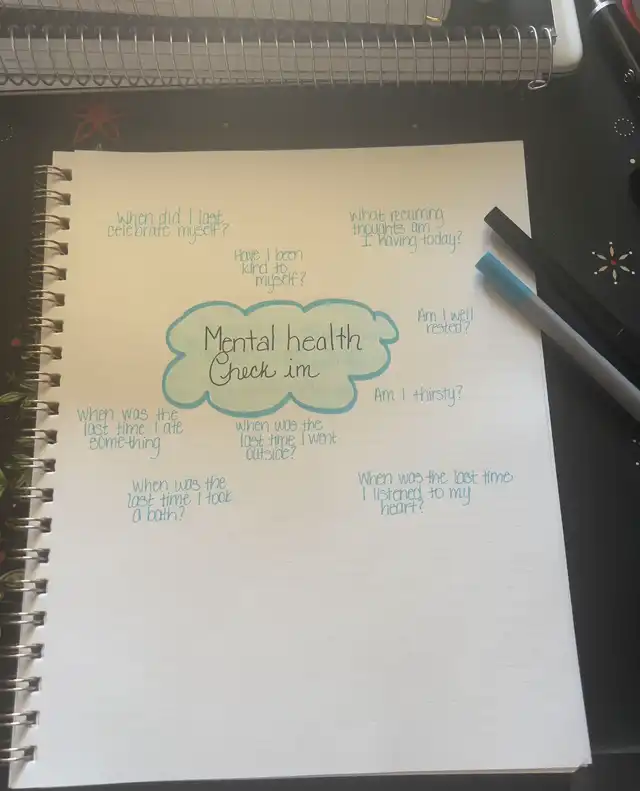 When did I last
celebrate myself?
What recurring
thoughts am
I having today?
Have I been
kind to
myself?
Mental health
Check in
Am I well
rested?
Am I thirsty?
When was the
last time I ate
something
When was the
last time I went
outside?
When was the
last time I took
a bath?
When was the last time
I listened to my
heart?